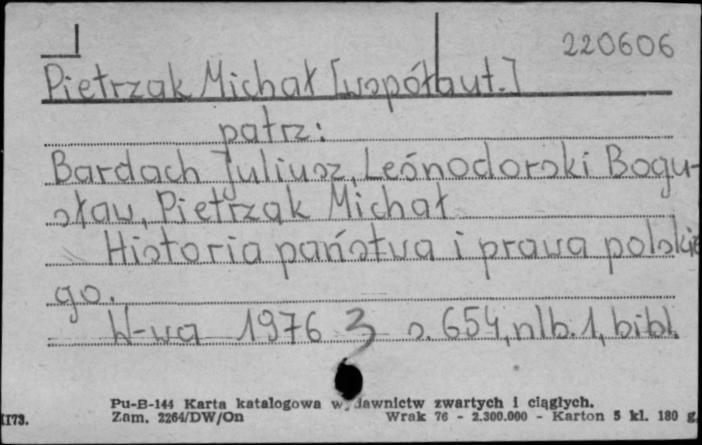 220606
Pietrzak Michał [współaut.]
patrz:
Bardach Juliusz, Leśnodorski Bogu-
sław, Pietrzak Michał
Historia państwa i prawa polskie
go.
W-wa 1976 3 s. 654, nlb. 1, bibl.
Pu-B-144 Karta katalogowa wydawnictw zwartych i ciągłych.
I173. Zam. 2264/DW/On Wrak 76 - 2.300.000 - Karton 5 kl. 180 g